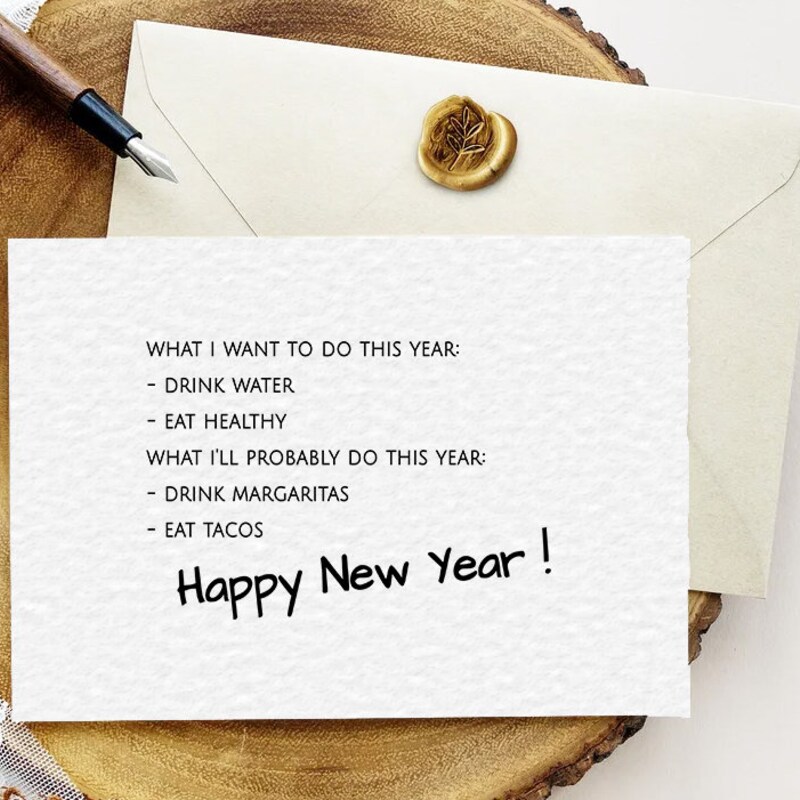 WHAT I WANT TO DO THIS YEAR:
- DRINK WATER
- EAT HEALTHY
WHAT I'LL PROBABLY DO THIS YEAR:
- DRINK MARGARITAS
- EAT TACOS
Happy New Year !